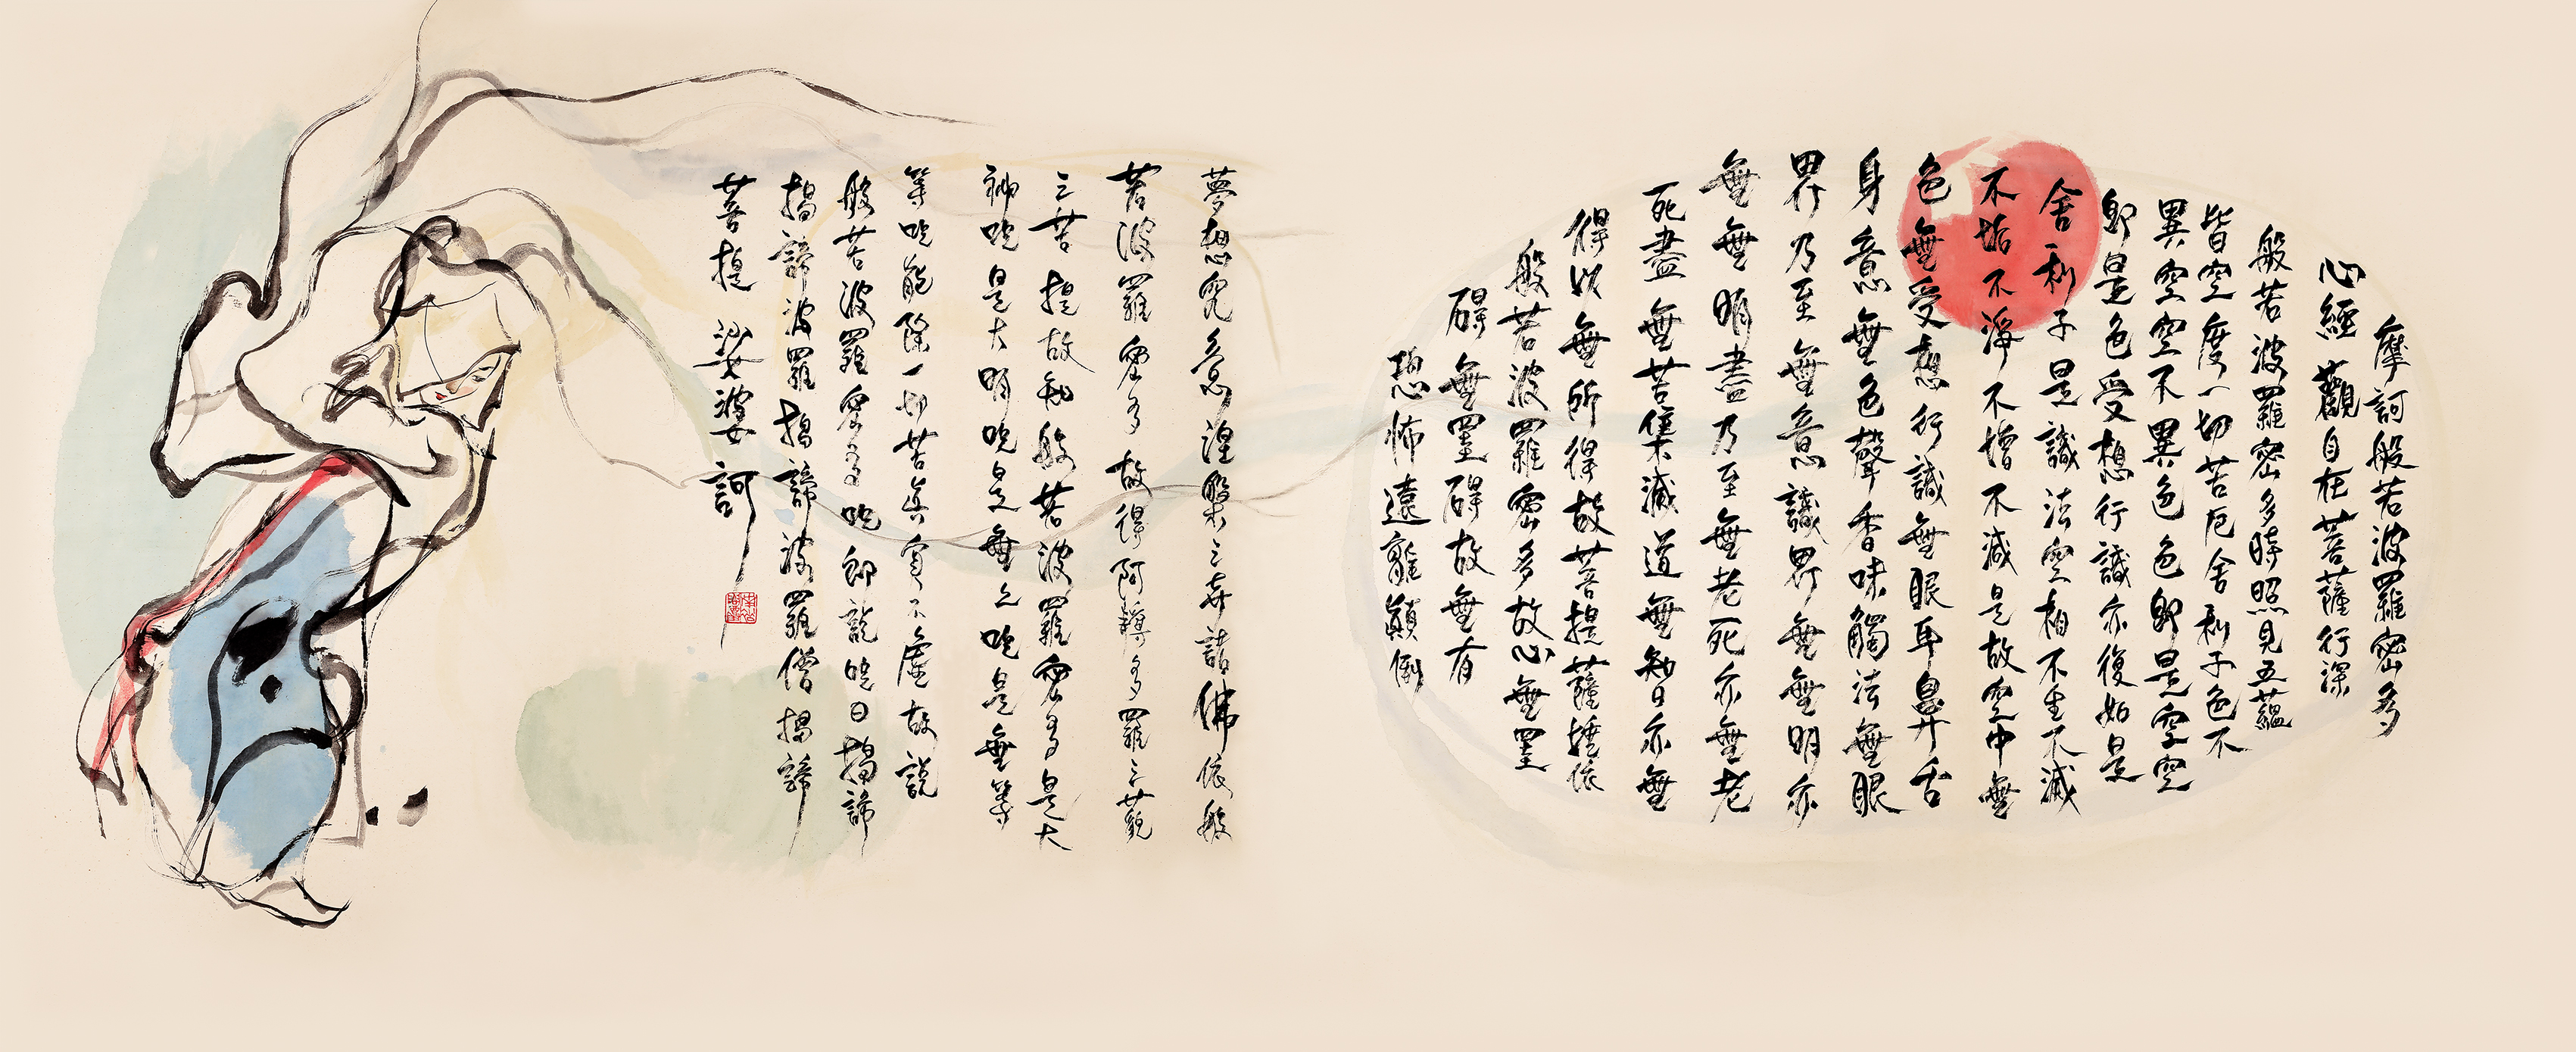 摩訶般若波羅密多
心經 觀自在菩薩行深
般若波羅密多時照見五蘊
皆空度一切苦厄舍利子色不
異空空不異色色即是空空
即是色受想行識亦復如是
舍利子是識法空相不生不滅
不垢不淨不增不減是故空中無
色無受想行識無眼耳鼻舌
身意無色聲香味觸法無眼
界乃至無意識界無無明亦
無無明盡乃至無老死亦無老
死盡無苦集滅道無智亦無
得以無所得故菩提薩埵依
般若波羅密多故心無罣
礙無罣礙故無有
恐怖遠離顛倒
夢想究竟涅槃三世諸佛依般
若波羅密多故得阿耨多羅三藐
三菩提故知般若波羅密多是大
神咒是大明咒是無上咒是無等
等咒能除一切苦真實不虛故說
般若波羅密多咒即說咒曰揭諦
揭諦波羅揭諦波羅僧揭諦
菩提 娑婆訶